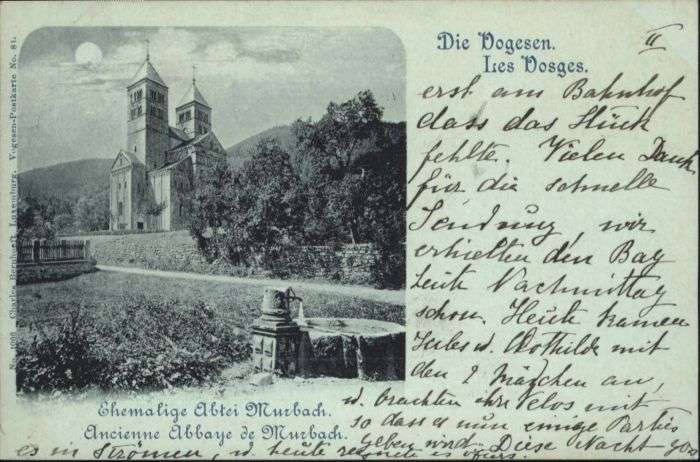 Die Vogesen.
Les Vosges.
II
erst am Bahnhof
dass das Stück
fehlte. Vielen Dank
für die schnelle
Sendung, wir
erhielten den Bag
heute Nachmittag
schon. Heute kamen
Jules u. Clothilde mit
den 2 Mädchen an,
u. brachten ihr Velos mit
so dass es nun einige Parties
geben wird. Diese Nacht goss
es in Strömen, u. heute regnete es
N. 1006 Charles Bernhoeft, Luxemburg. Vogesen-Postkarte No. 81.
Ehemalige Abtei Murbach.
Ancienne Abbaye de Murbach.